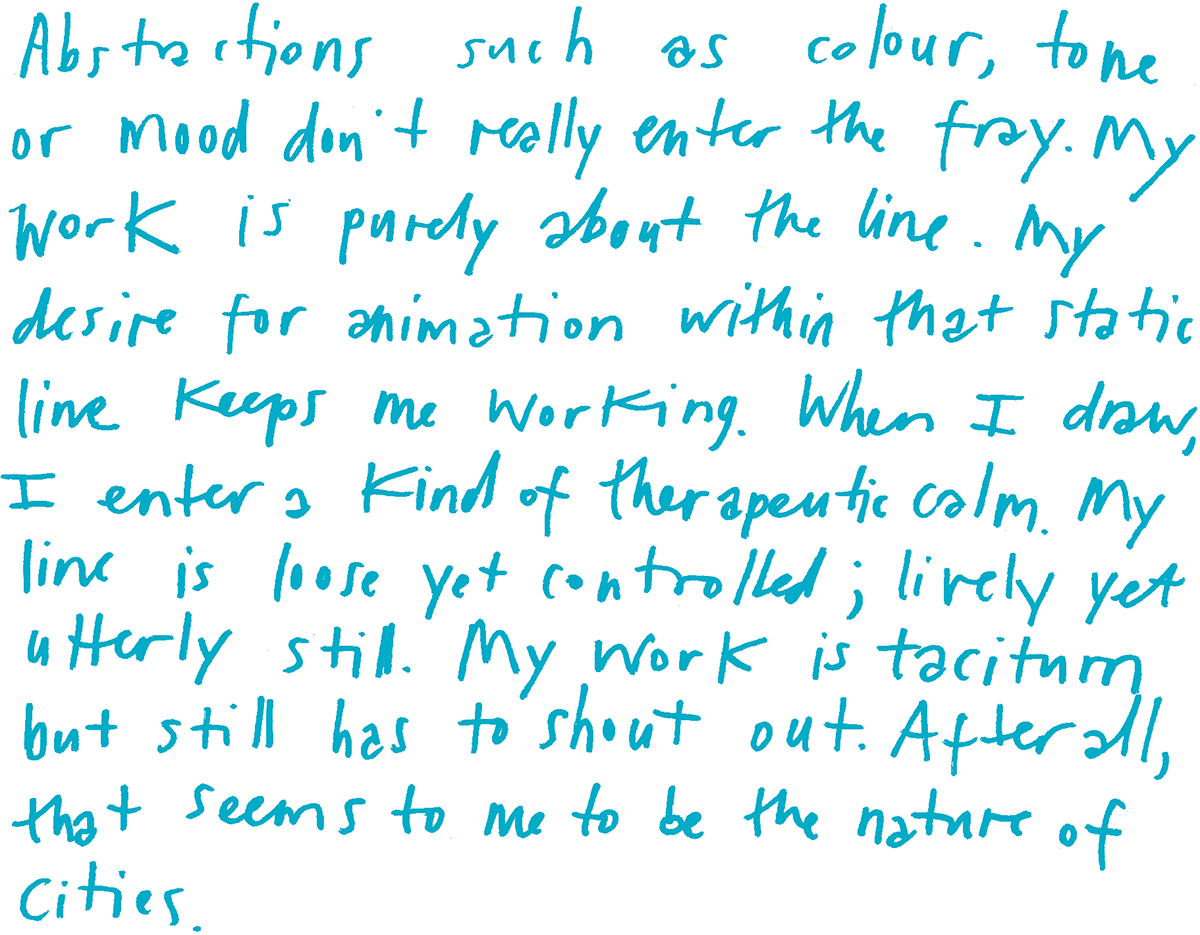 Abstractions such as colour, tone
or mood don't really enter the fray. My
work is purely about the line. My
desire for animation within that static
line keeps me working. When I draw,
I enter a kind of therapeutic calm. My
line is loose yet controlled; lively yet
utterly still. My work is taciturn
but still has to shout out. After all,
that seems to me to be the nature of
cities.